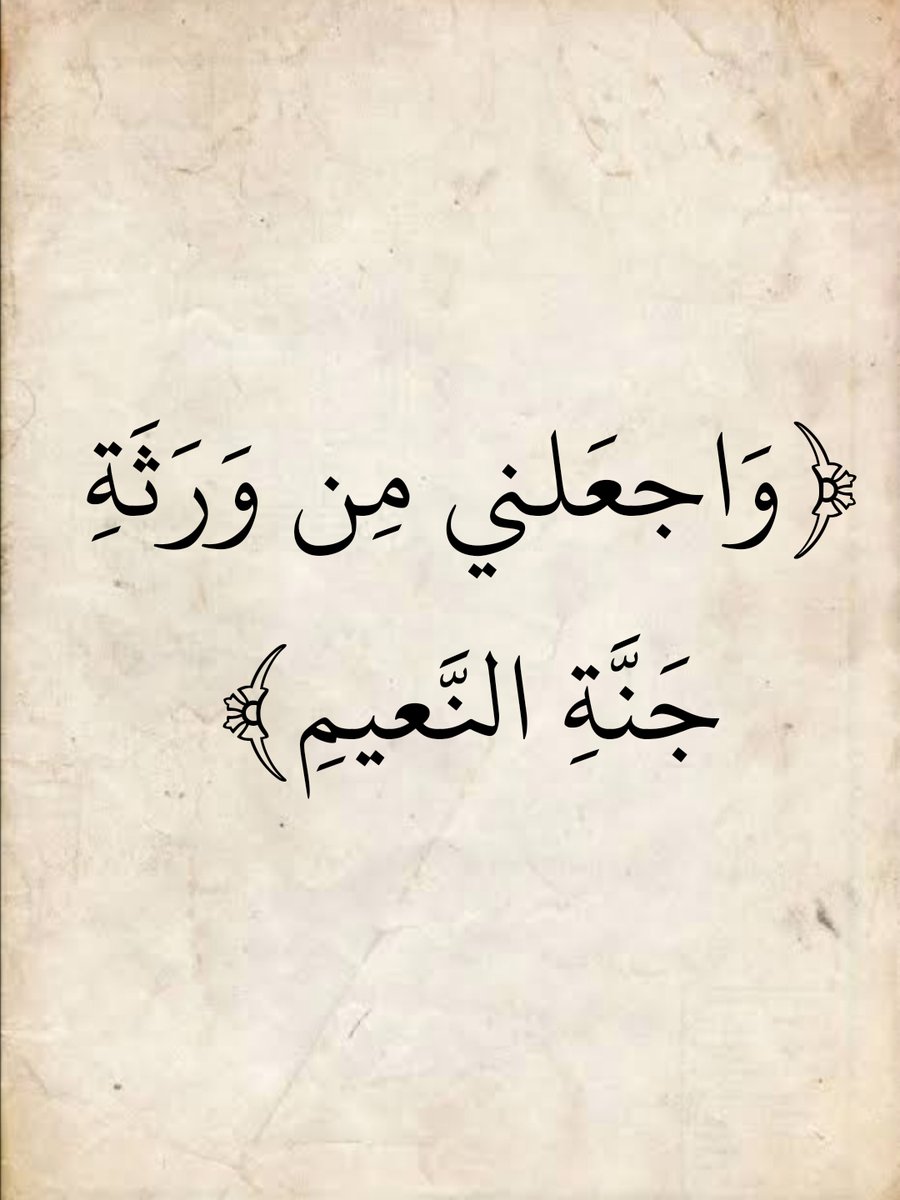 ﴿وَاجعَلني مِن وَرَثَةِ
جَنَّةِ النَّعيمِ﴾